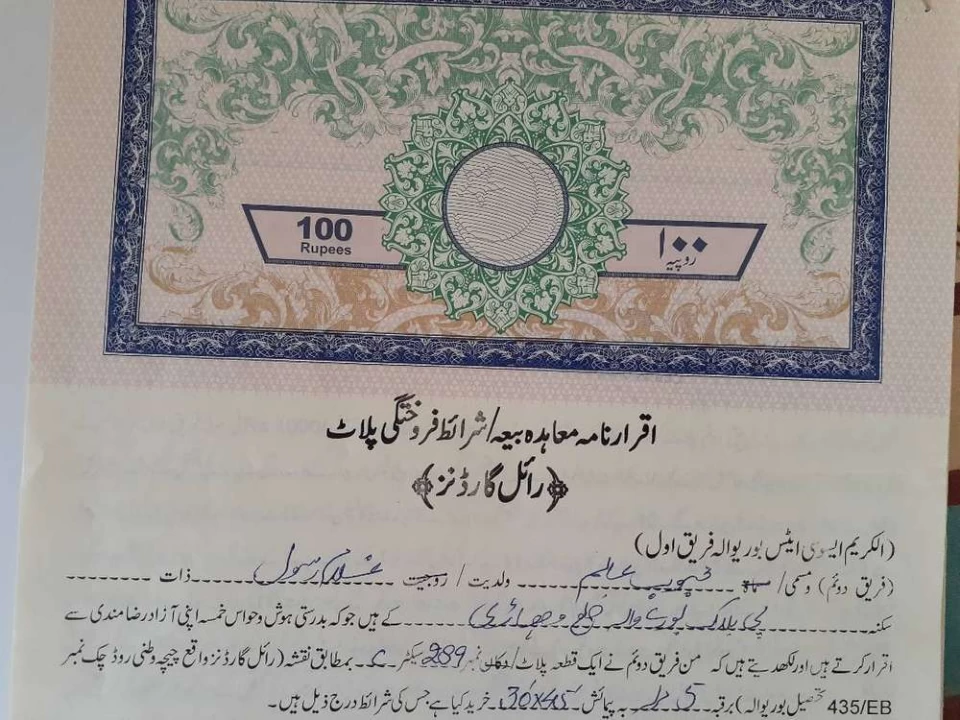 100
Rupees
۱۰۰
روپیہ
اقرار نامہ معاہدہ بیعہ/شرائط فروختگی پلاٹ
﴿رائل گارڈنز﴾
(الکریم ایسوسی ایٹس بوریوالہ فریق اول)
(فریق دوئم) ومسمی/ محبوب عالم ولدیت / زوجیت غلام رسول ذات
سکنہ بی بلاک بورے والہ ضلع وہاڑی کے ہیں جو کہ بدرستی ہوش وحواس خمسہ اپنی آزاد رضامندی سے
اقرار کرتے ہیں اور لکھ دیتے ہیں کہ من فریق دوئم نے ایک قطعہ پلاٹ/دکان نمبر 289 سیکٹر C بمطابق نقشہ (رائل گارڈنز واقع چیچہ وطنی روڈ چک نمبر
435/EB تحصیل بوریوالہ) برقبہ 5 مرلہ بہ پیمائش 30x45 خرید کیا ہے جس کی شرائط درج ذیل ہیں۔